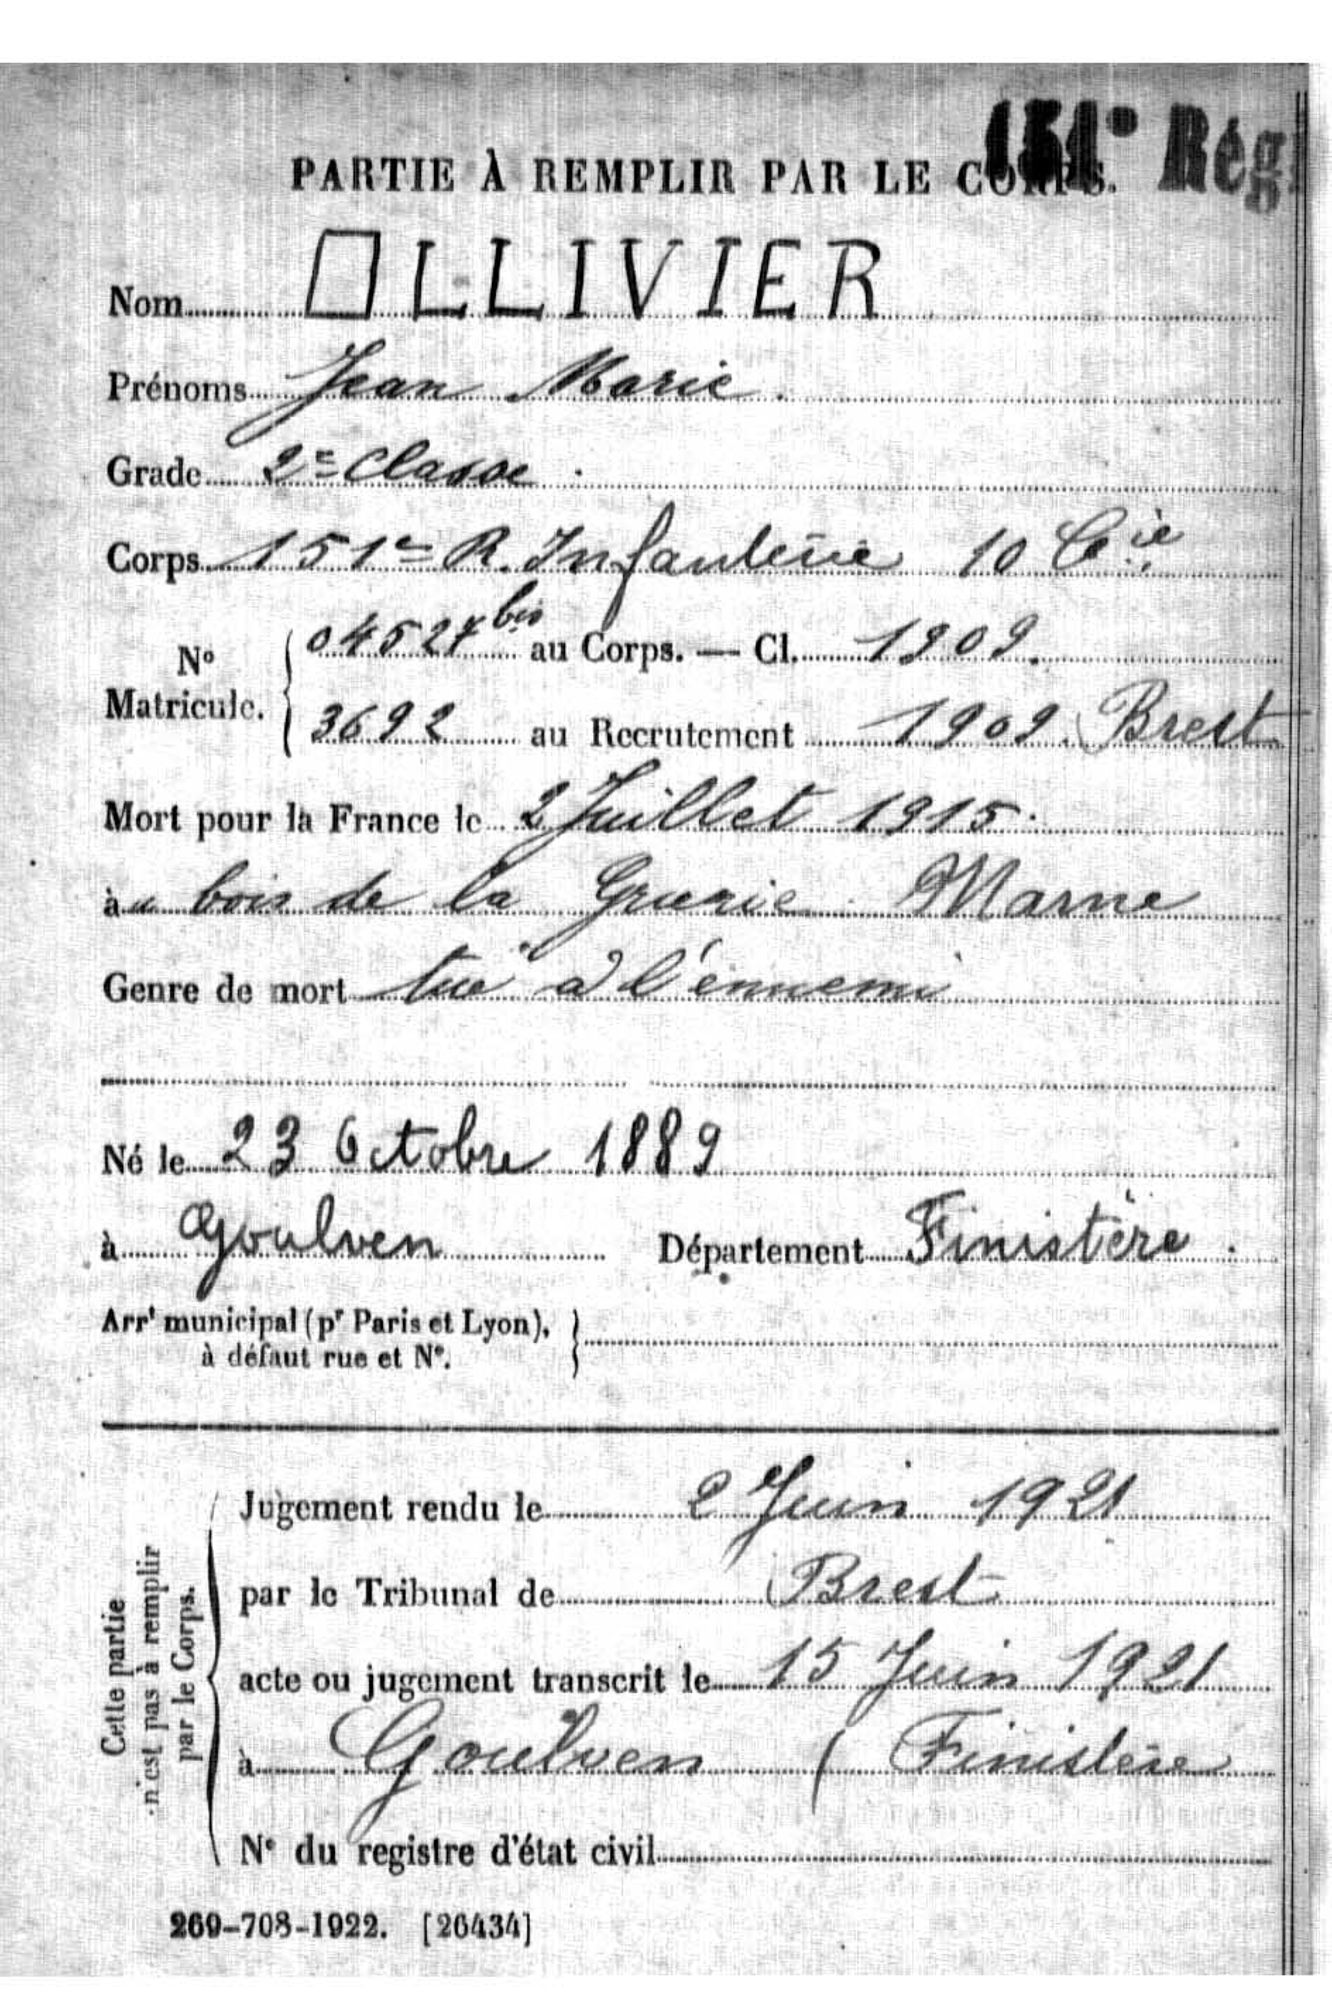 151e Rég
PARTIE À REMPLIR PAR LE CORPS.
Nom OLLIVIER
Prénoms Jean Marie
Grade 2e Classe
Corps 151e R. Infanterie 10 Cie
No Matricule. 04527 bis au Corps. — Cl. 1909.
3692 au Recrutement 1909 Brest
Mort pour la France le 2 Juillet 1915
à u bois de la Grurie Marne
Genre de mort tué à l'ennemi
Né le 23 Octobre 1889
à Goulven Département Finistère
Arrt municipal (pr Paris et Lyon),
à défaut rue et No.
Cette partie
n'est pas à remplir
par le Corps.
Jugement rendu le 2 Juin 1921
par le Tribunal de Brest
acte ou jugement transcrit le 15 Juin 1921
à Goulven ( Finistère
No du registre d'état civil
269-708-1922. [26434]